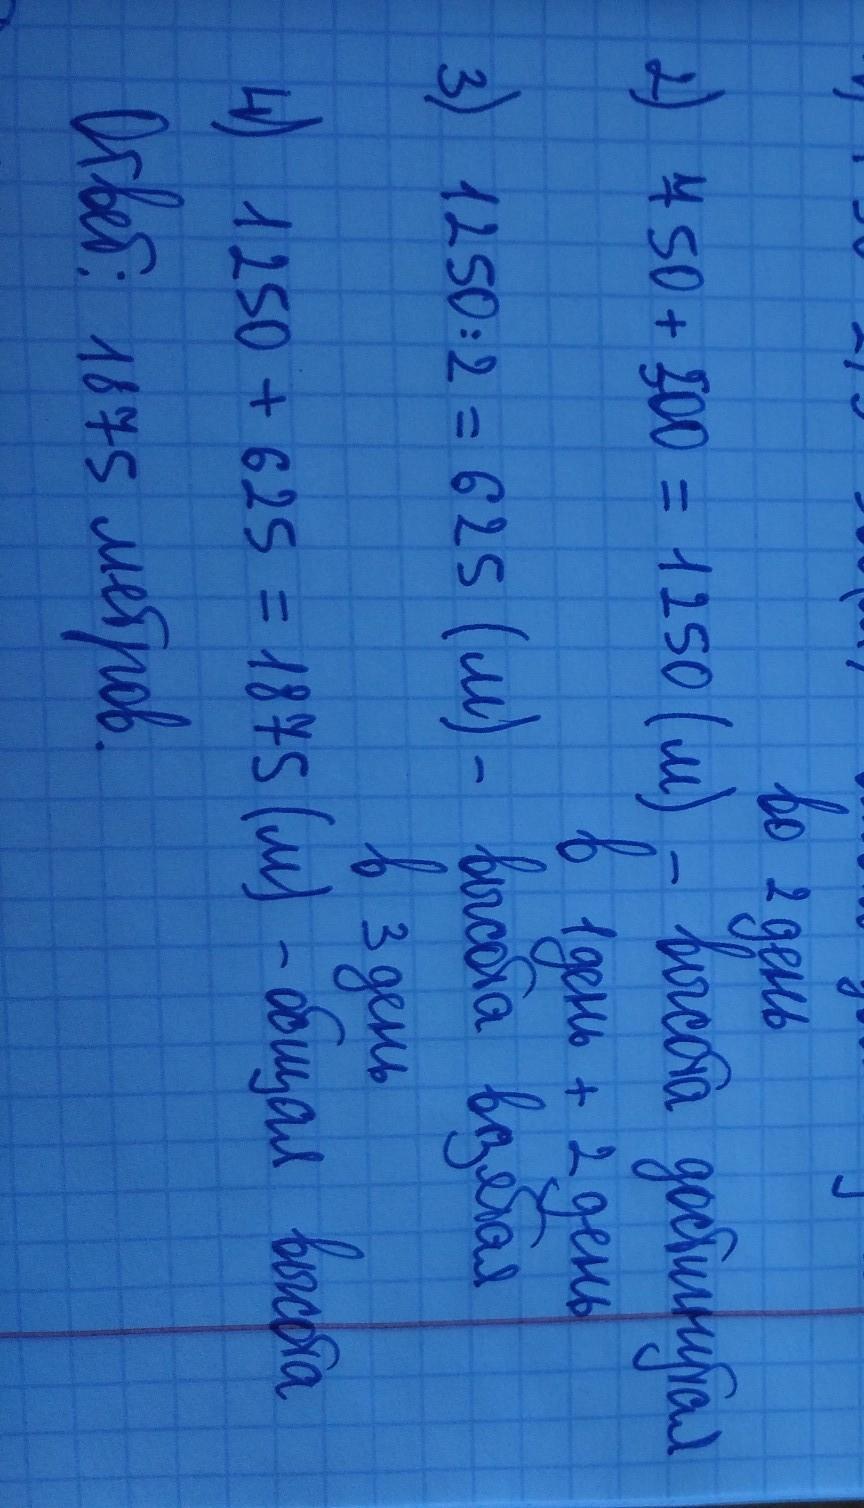 во 2 день
2) 750 + 500 = 1250 (м) - высота достигнутая
в 1 день + 2 день
3) 1250 : 2 = 625 (м) - высота взятая
в 3 день
4) 1250 + 625 = 1875 (м) - общая высота
Ответ: 1875 метров.